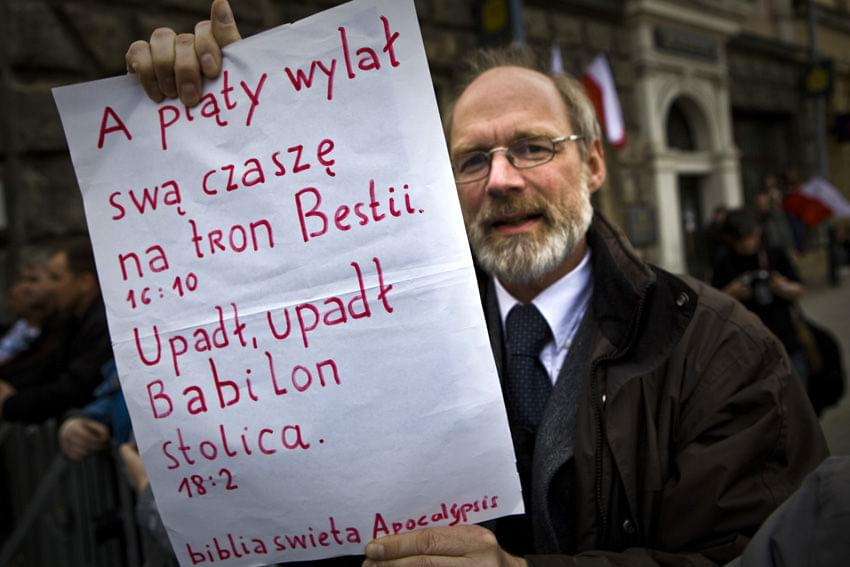 A piąty wylał
swą czaszę
na tron Bestii.
16:10
Upadł, upadł
Babilon
stolica.
18:2
biblia swieta Apocalypsis